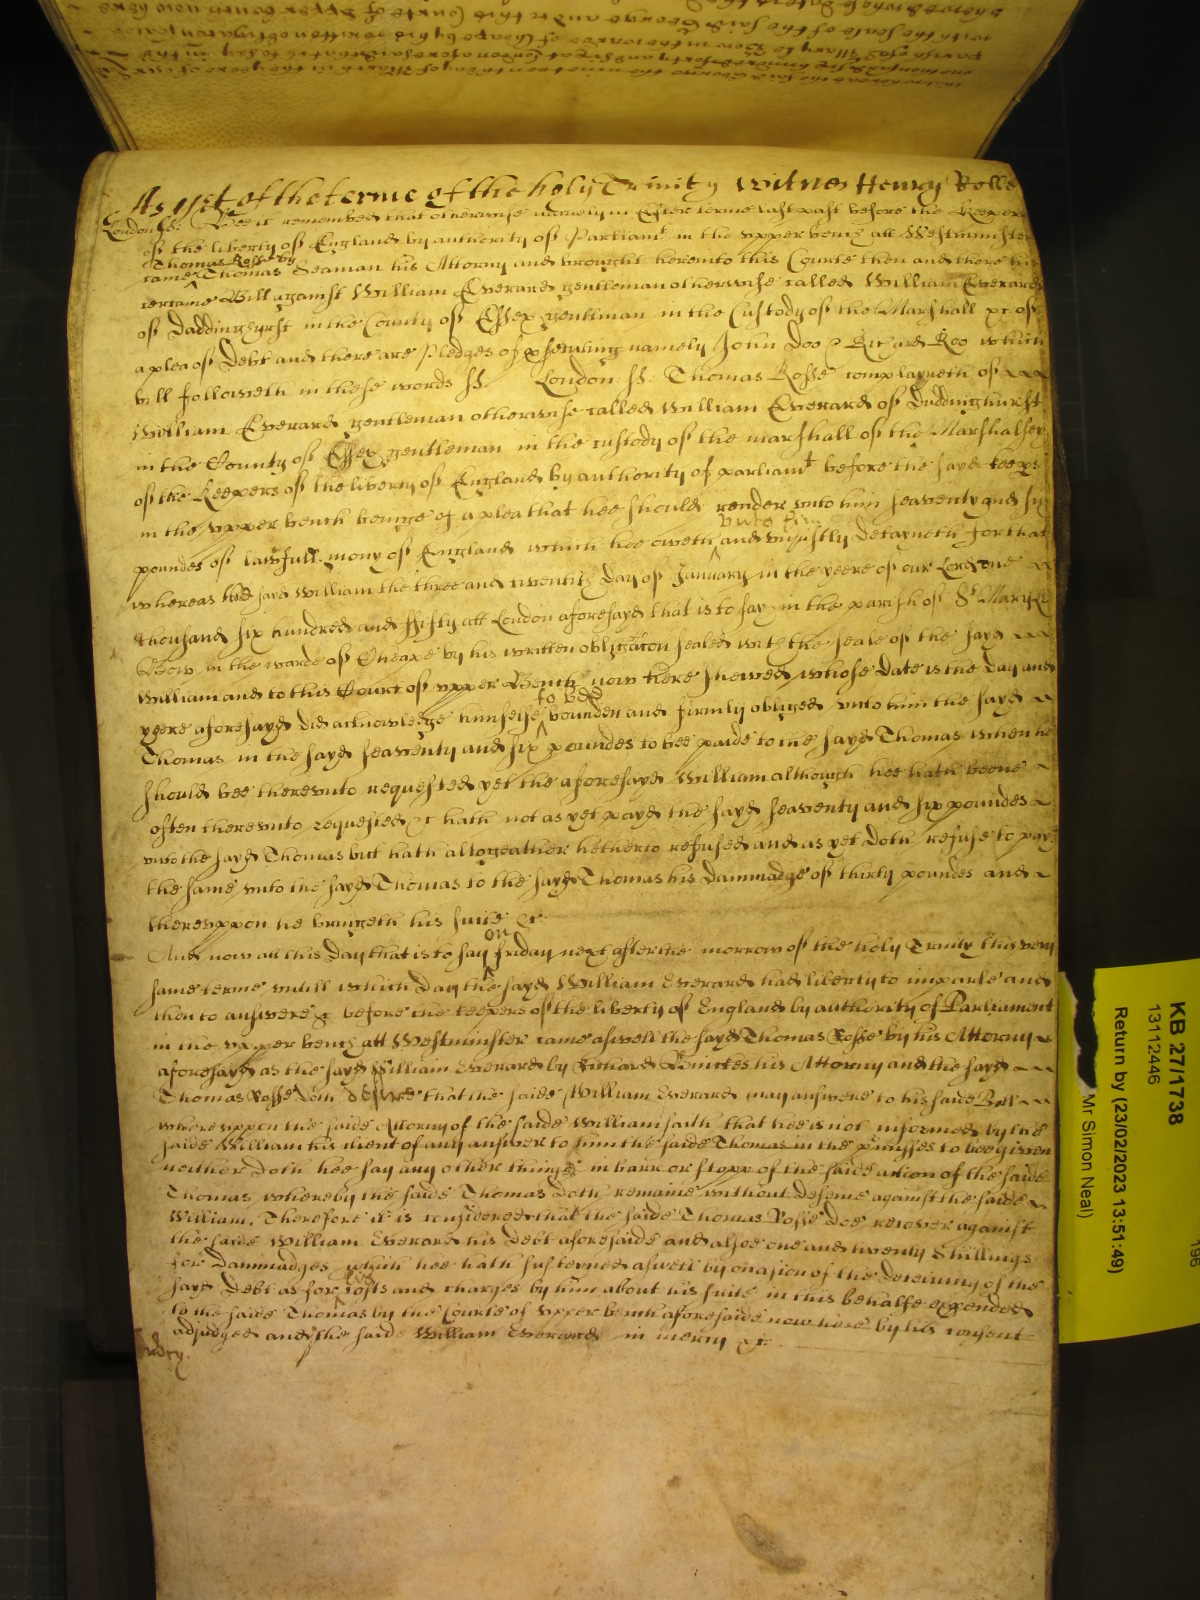 As yet of the terme of the holy Trinity witnes Henry Rolle
London ss. Bee it remembred that otherwise namely in Easter terme last past before the Keepers
of the liberty of England by authority of Parliamt in the vpper bench att Westminster
Thomas Rosse by
came Thomas Seaman his Attorny and brought here into this Courte then and there his
certaine Bill against William Everard gentleman otherwise called William Everard
of Daddinghurst in the County of Essex gentleman in the Custody of the Marshall &c of
a plea of Debt and there are Pledges of prosecuting namely John Doo & Richard Roo which
bill followeth in these words ss. London ss. Thomas Rosse complayneth of
William Everard gentleman otherwise called William Everard of Duddinghurst
in the County of Essex gentleman in the custody of the marshall of the Marshalsey
of the Keepers of the liberty of England by authority of parliamt before the sayd keeps
in the vpper bench beinge of a plea that hee should render vnto him seaventy and six
vnto him
poundes of lawfull mony of England which hee oweth and vniustly detayneth for that
whereas the sayd William the three and twentith day of January in the yeere of our Lord one
thousand six hundred and ffifty att London aforesayd that is to say in the parish of St Mary le
Bow in the warde of Cheape by his written obligacon sealed with the seale of the sayd
William and to this Court of vpper Bench now here shewed whose date is the day and
to bee
yeere aforesayd did acknowledge himselfe bounden and firmly obliged vnto him the sayd
Thomas in the sayd seaventy and six poundes to bee paide to the sayd Thomas when he
should bee therevnto requested yet the aforesayd William although hee hath beene
often therevnto requested &c hath not as yet payd the sayd seaventy and six poundes
vnto the sayd Thomas but hath altogeather hetherto refused and as yet doth refuse to pay
the same vnto the sayd Thomas to the sayd Thomas his dammadge of thirty poundes and
therevppon he bringeth his suite &c
on
And now att this day that is to say friday next after the morrow of the holy Trinity this very
same terme vntill which day the sayd William Everard had liberty to imparle and
then to answere &c before the keepers of the liberty of England by authority of Parliament
in the vpper bench att Westminster came aswell the sayd Thomas Rosse by his Attorny
aforesayd as the sayd William Everard by Richard his Attorny and the sayd
Thomas Rosse doth desire that the saide William Everard may answere to his saide Bill
wherevppon the saide Attorny of the saide William saith that hee is not informed by the
saide William his client of any answer to him the saide Thomas in the p'mysses to bee given
neither doth hee say any other thinge in barr or stopp of the saide action of the saide
Thomas whereby the saide Thomas doth remaine without defence against the saide
William. Therefore it is considered that the saide Thomas Rosse doe recover against
the saide William Everard his debt aforesaide and alsoe one and twenty shillings
for dammadges which hee hath susteyned aswell by occasion of the deteining of the
his
sayd debt as for costs and charges by him about his suite in this behalfe expended
to the saide Thomas by the Courte of vpper bench aforesaide now here by his consent
adjudged and the saide William Everard in mercy &c.
mercy.
KB 27/1738
13112446
Return by (23/02/2023 13:51:49)
Mr Simon Neal)
196